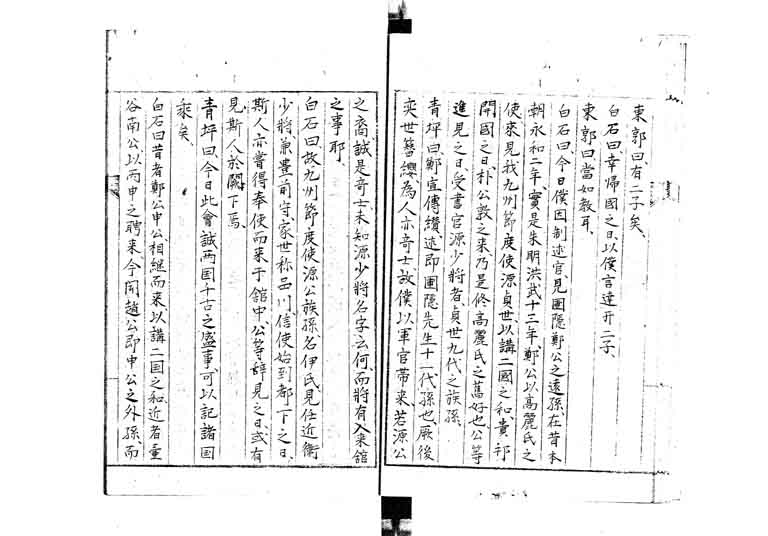 東郭曰、有二子矣、
白石曰、幸帰國之日、以僕言達于二子、
東郭曰、當如教耳、
白石曰、今日僕因制述官、見圃隱鄭公之遠孫、在昔本
朝永和二年、實是朱明洪武十三年、鄭公以高麗氏之
使來見我九州節度使源貞世、以講二國之和、貴邦
開國之日、朴公敦之来、乃是修高麗氏之舊好也、公等
進見之日、受書官源少將者、貞世九代之族孫
青坪曰、鄭宣傳纘述、即圃隱先生十一代孫也、厥後
奕世簪纓、為人亦奇士、故僕以軍官帯来、若源公
之裔、誠是奇士、未知源少將名字云何、而將有入来舘
之事耶、
白石曰、故九州節度使源公族孫、名伊氏、見任近衛
少將兼豊前守、家世称品川、信使始到都下之日、
斯人亦嘗得奉使而来于舘中、公等辞見之日、或有
見斯人於闕下焉、
青坪曰、今日此會、誠两国千古之盛事、可以記諸国
乘矣、
白石曰、昔者鄭公申公相継而来、以講二国之和、近者童
谷南公、以丙申之聘来、今聞趙公即申公之外孫、而